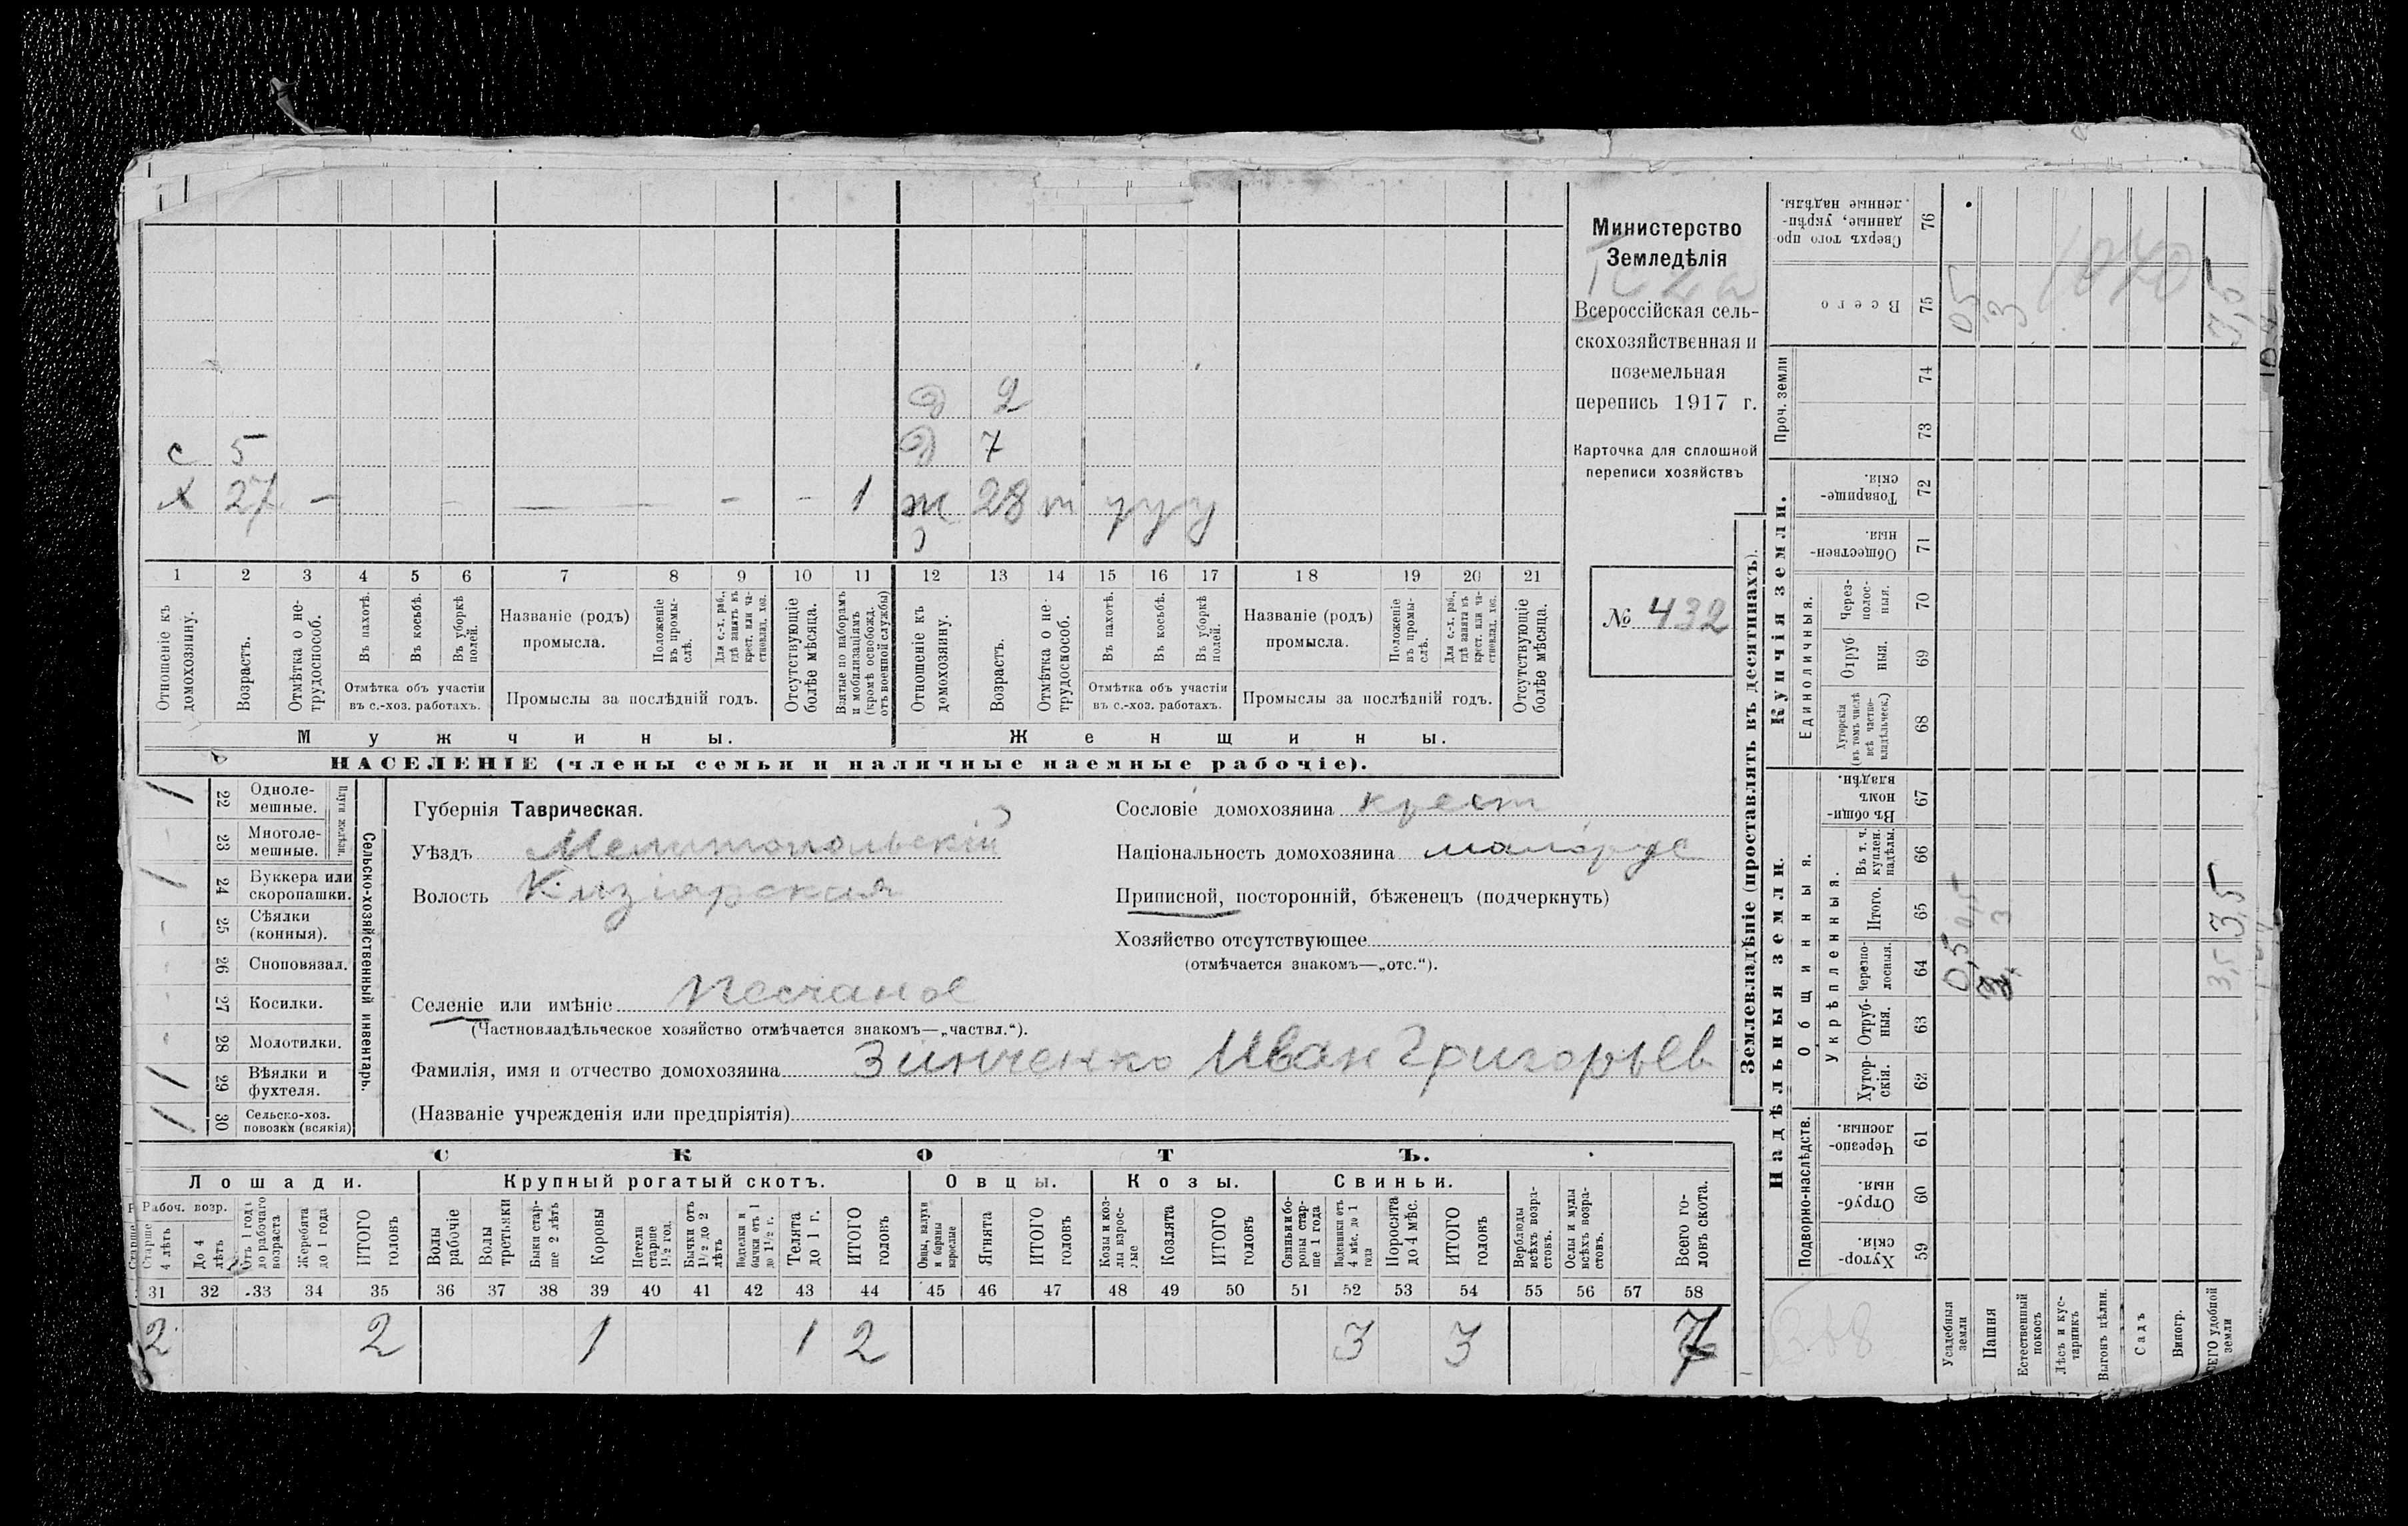 Министерство
Земледѣлія
Всероссійская сель-
скохозяйственная и
поземельная
перепись 1917 г.
Карточка для сплошной
переписи хозяйствъ
№ 432
д 2
с 5 д 7
х 27 — — — — — 1 ж 28 т у у у
1 2 3 4 5 6 7 8 9 10 11 12 13 14 15 16 17 18 19 20 21
Отношеніе къ домохозяину.
Возрастъ.
Отмѣтка о не-трудоспособ.
Въ пахотѣ.
Въ косьбѣ.
Въ уборкѣ полей.
Отмѣтка объ участіи въ с.-хоз. работахъ.
Названіе (родъ) промысла.
Положеніе въ промы-слѣ.
Для с.-х. раб., гдѣ занятъ въ крест. или ча-стновлад. хоз.
Промыслы за послѣдній годъ.
Отсутствующіе болѣе мѣсяца.
Взятые по наборамъ и мобилизаціямъ (кромѣ освобожд. отъ военной службы)
Отношеніе къ домохозяину.
Возрастъ.
Отмѣтка о не-трудоспособ.
Въ пахотѣ.
Въ косьбѣ.
Въ уборкѣ полей.
Отмѣтка объ участіи въ с.-хоз. работахъ.
Названіе (родъ) промысла.
Положеніе въ промы-слѣ.
Для с.-х. раб., гдѣ занята въ крест. или ча-стновлад. хоз.
Промыслы за послѣдній годъ.
Отсутствующіе болѣе мѣсяца.
Мужчины. Женщины.
НАСЕЛЕНІЕ (члены семьи и наличные наемные рабочіе).
Сельско-хозяйственный инвентарь.
Плуги желѣзн.
1 22 Одноле-мешные.
- 23 Многоле-мешные.
1 24 Буккера или скоропашки.
- 25 Сѣялки (конныя).
- 26 Сноповязал.
- 27 Косилки.
- 28 Молотилки.
1 29 Вѣялки и фухтеля.
1 30 Сельско-хоз. повозки (всякія)
Губернія Таврическая.
Уѣздъ Мелитопольскій
Волость Кизіярская
Селеніе или имѣніе Песчаное
(Частновладѣльческое хозяйство отмѣчается знакомъ—„частвл.“).
Фамилія, имя и отчество домохозяина Зинченко Иван Григорьев
(Названіе учрежденія или предпріятія)
Сословіе домохозяина крест
Національность домохозяина малорус
Приписной, посторонній, бѣженецъ (подчеркнуть)
Хозяйство отсутствующее
(отмѣчается знакомъ—„отс.“).
СКОТЪ.
Лошади. Крупный рогатый скотъ. Овцы. Козы. Свиньи.
Рабоч. возр.
Старше 4 лѣтъ
До 4 лѣтъ
Отъ 1 года до рабочаго возраста
Жеребята до 1 года
ИТОГО головъ
Волы рабочіе
Волы третьяки
Быки стар-ше 2 лѣтъ
Коровы
Нетели старше 1½ год.
Бычки отъ 1½ до 2 лѣтъ
Подтелки и бычки отъ 1 до 1½ г.
Телята до 1 г.
ИТОГО головъ
Овцы, валухи и бараны взрослые
Ягнята
ИТОГО головъ
Козы и коз-лы взрос-лые
Козлята
ИТОГО головъ
Свиньи и бо-ровы стар-ше 1 года
Подсвинки отъ 4 мѣс. до 1 года
Поросята до 4 мѣс.
ИТОГО головъ
Верблюды всѣхъ возра-стовъ.
Ослы и мулы всѣхъ возра-стовъ.
Всего го-ловъ скота.
31 32 33 34 35 36 37 38 39 40 41 42 43 44 45 46 47 48 49 50 51 52 53 54 55 56 57 58
2 2 1 1 2 3 3 7
Землевладѣніе (проставлять въ десятинахъ).
Надѣльныя земли.
Подворно-наслѣдств.
Хутор-скія. 59
Отруб-ныя. 60
Черезпо-лосныя. 61
Общинныя.
Укрѣпленныя.
Хутор-скія. 62
Отруб-ныя. 63
Черезпо-лосныя. 64
Итого. 65
Въ т. ч. куплен. надѣлы. 66
Въ общин-номъ владѣн. 67
Купчія земли.
Единоличныя.
Хуторскія (въ томъ числѣ всѣ частно-владѣльческ.) 68
Отруб ныя. 69
Через-полос-ныя. 70
Обществен-ныя. 71
Товарище-скія. 72
Проч. земли
73 74
Всего 75
Сверхъ того про данные, укрѣп-ленные надѣлы. 76
Усадебныя земли 0,5 0,5 05
Пашня 3 3 3
Естественный покосъ
Лѣсъ и кус-тарникъ
Выгонъ цѣлин.
Садъ
Виногр.
ВСЕГО удобной земли 3,5 3,5 3,5
1040